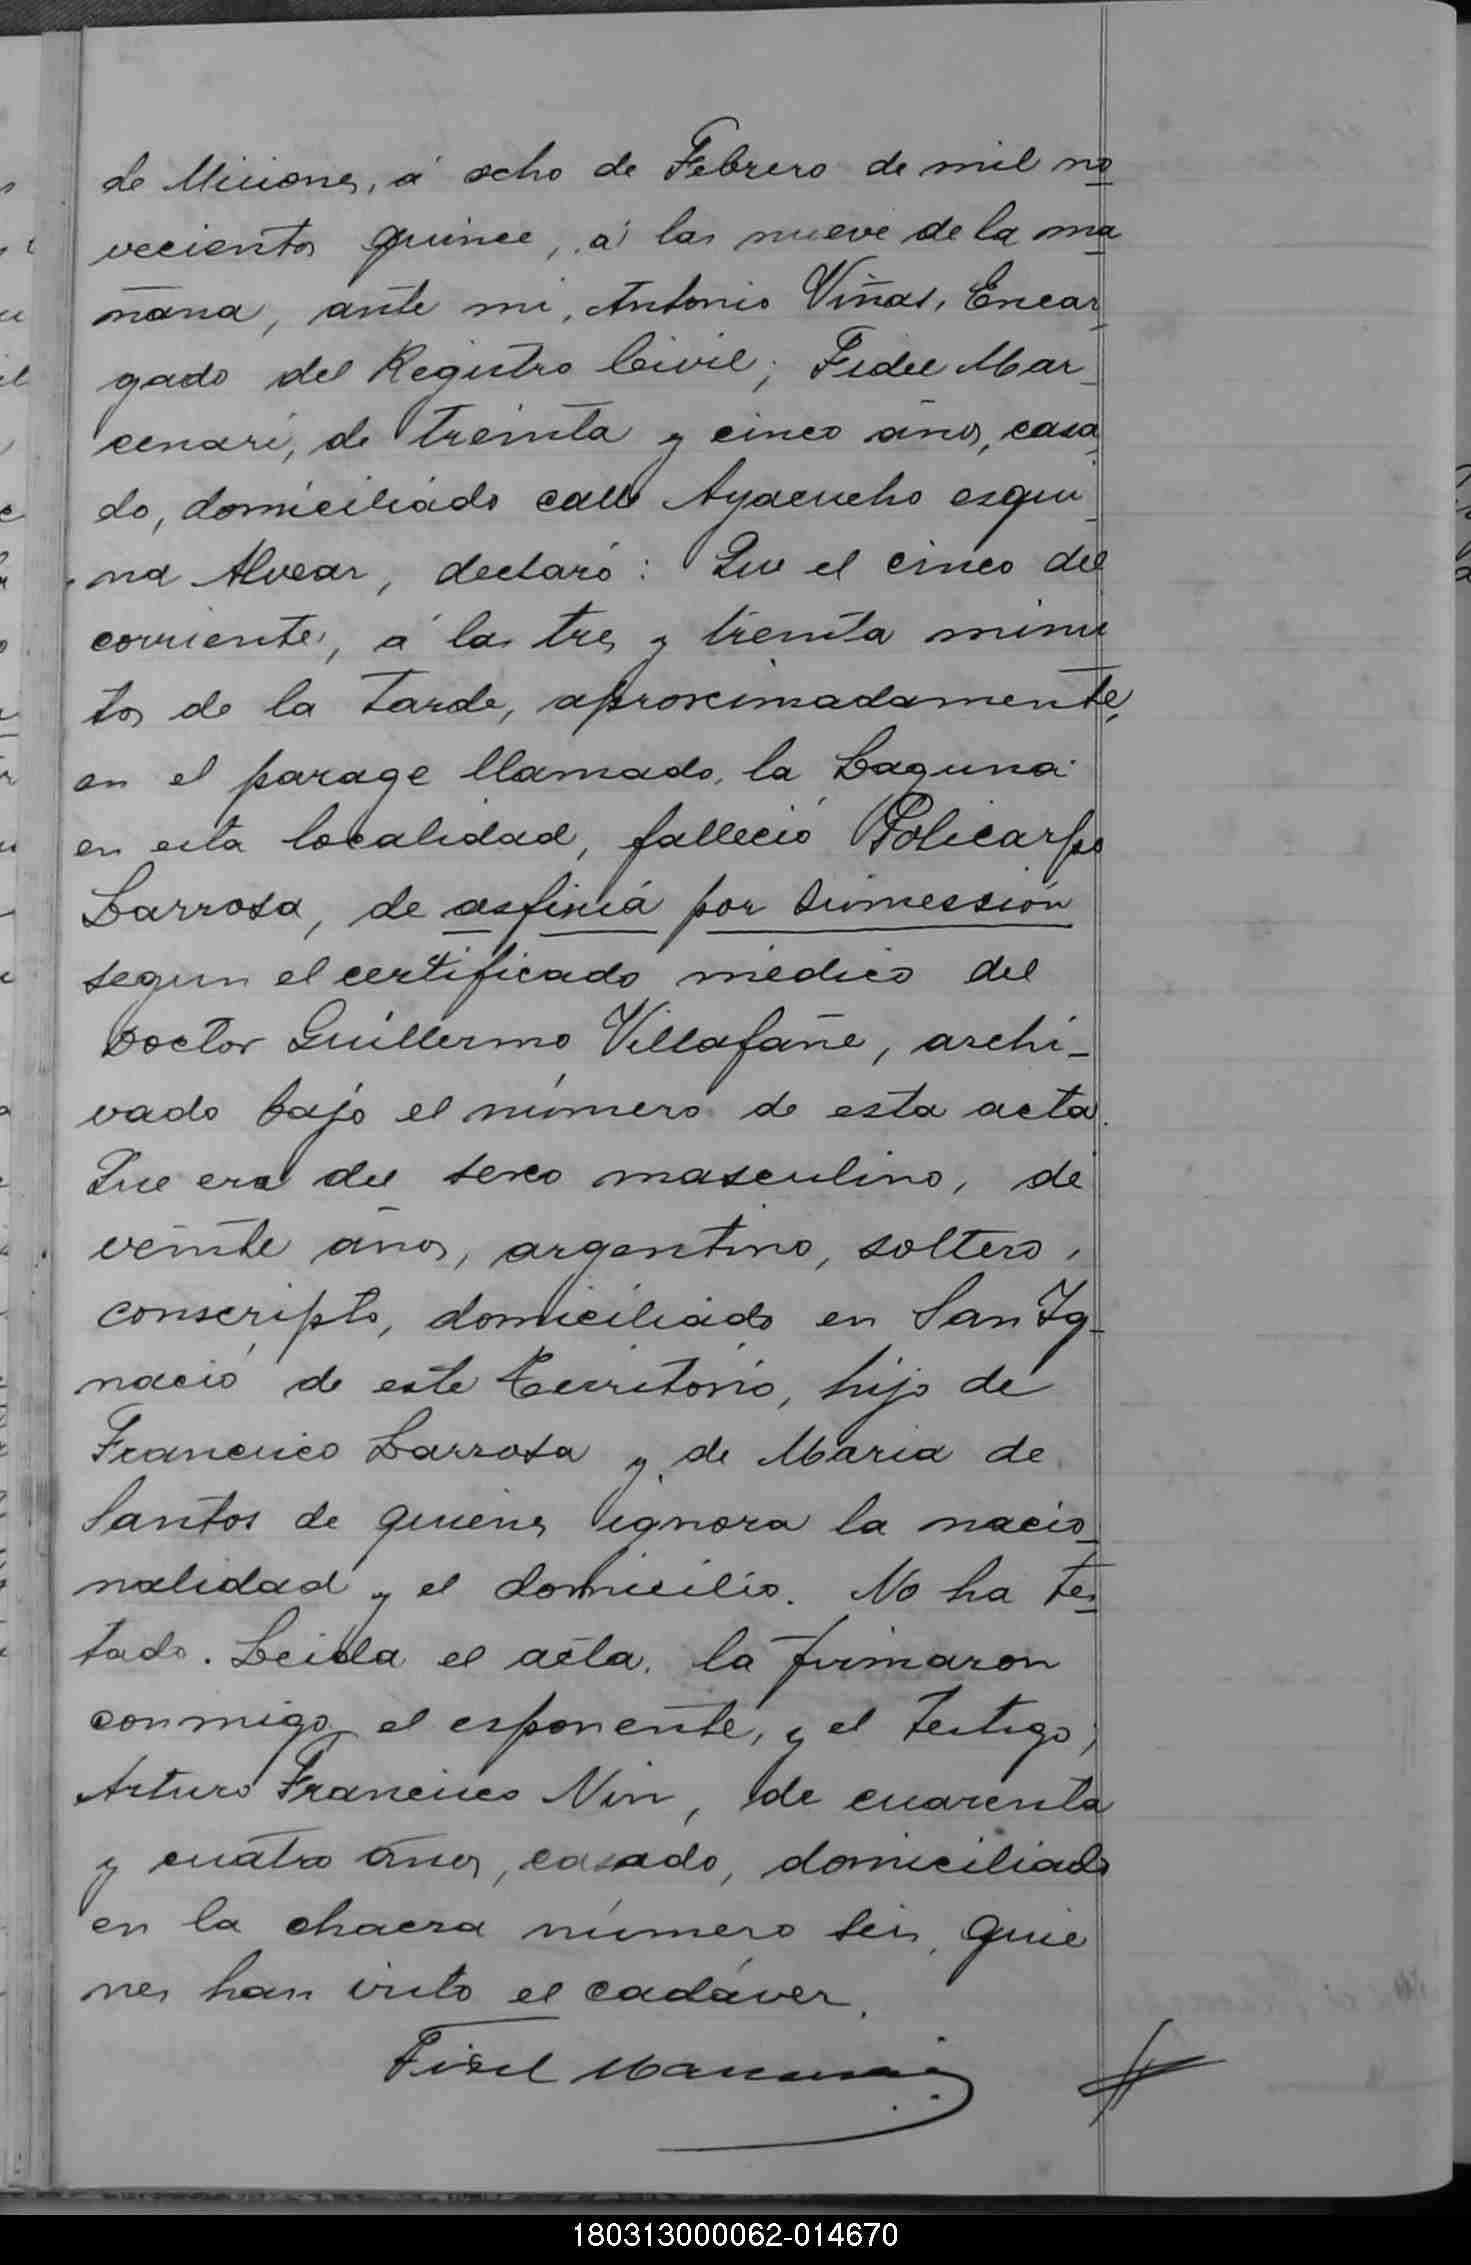 de Misiones, á ocho de Febrero de mil no
vecientos quince, á las nueve de la ma
ñana, ante mi, Antonio Viñas, Encar
gado del Registro Civil; Fidel Mar
cenari, de treinta y cinco años, casa
do, domiciliado calle Ayacucho esqui
na Alvear, declaró: Que el cinco del
corriente, á las tres y treinta minu
tos de la tarde, aproximadamente,
en el parage llamado, la Laguna
en esta localidad, falleció Policarpo
Barrosa, de asfixiá por sumessión
segun el certificado médico del
Doctor Guillermo Villafañe, archi-
vado bajo el número de esta acta.
Que era del sexo masculino, de
veinte años, argentino, soltero,
conscripto, domiciliado en San Ig-
nacio de este Territorio, hijo de
Francisco Barrosa y de Maria de
Santos de quienes ignora la nacio
nalidad y el domicilio. No ha tes
tado. Leida el acta, la firmaron
conmigo el esponente, y el testigo;
Arturo Francisco Nin, de cuarenta
y cuatro años, casado, domiciliado
en la chacra número seis, quie
nes han visto el cadáver.
Fidel Marcenari
180313000062-014670